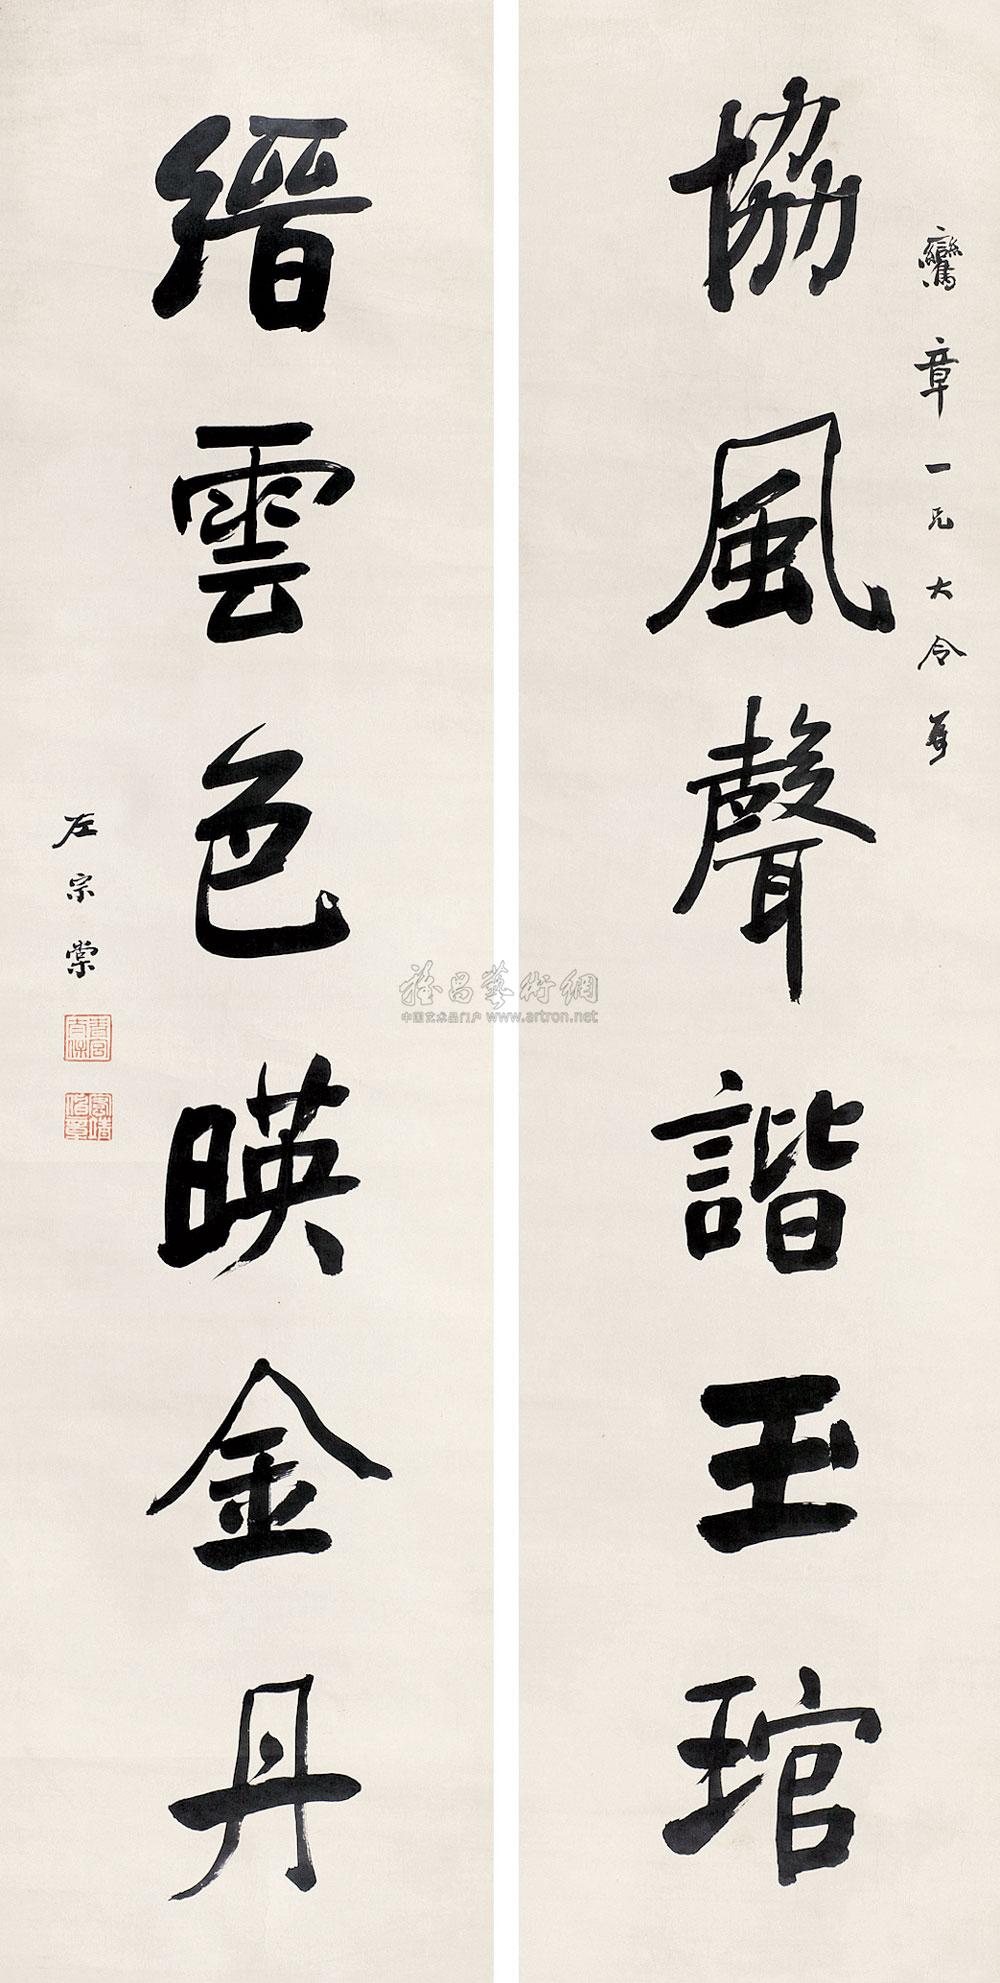 鸞章一兄大令属
協風聲諧玉琯
縉雲色暎金丹
左宗棠
青宮太保
雅昌藝術網
中国艺术品门户 www.artron.net